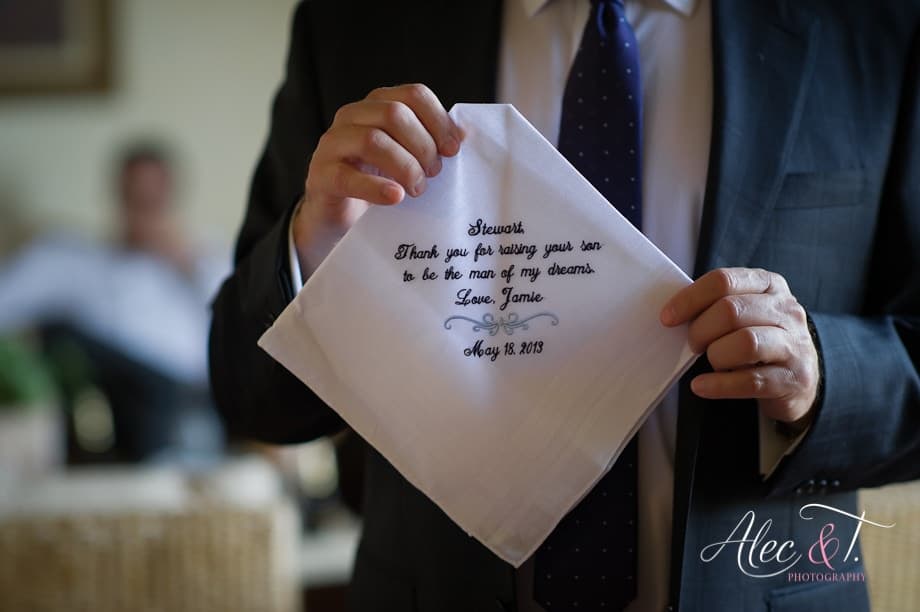 Stewart,
Thank you for raising your son
to be the man of my dreams.
Love, Jamie
May 18, 2013
Alec & T.
PHOTOGRAPHY